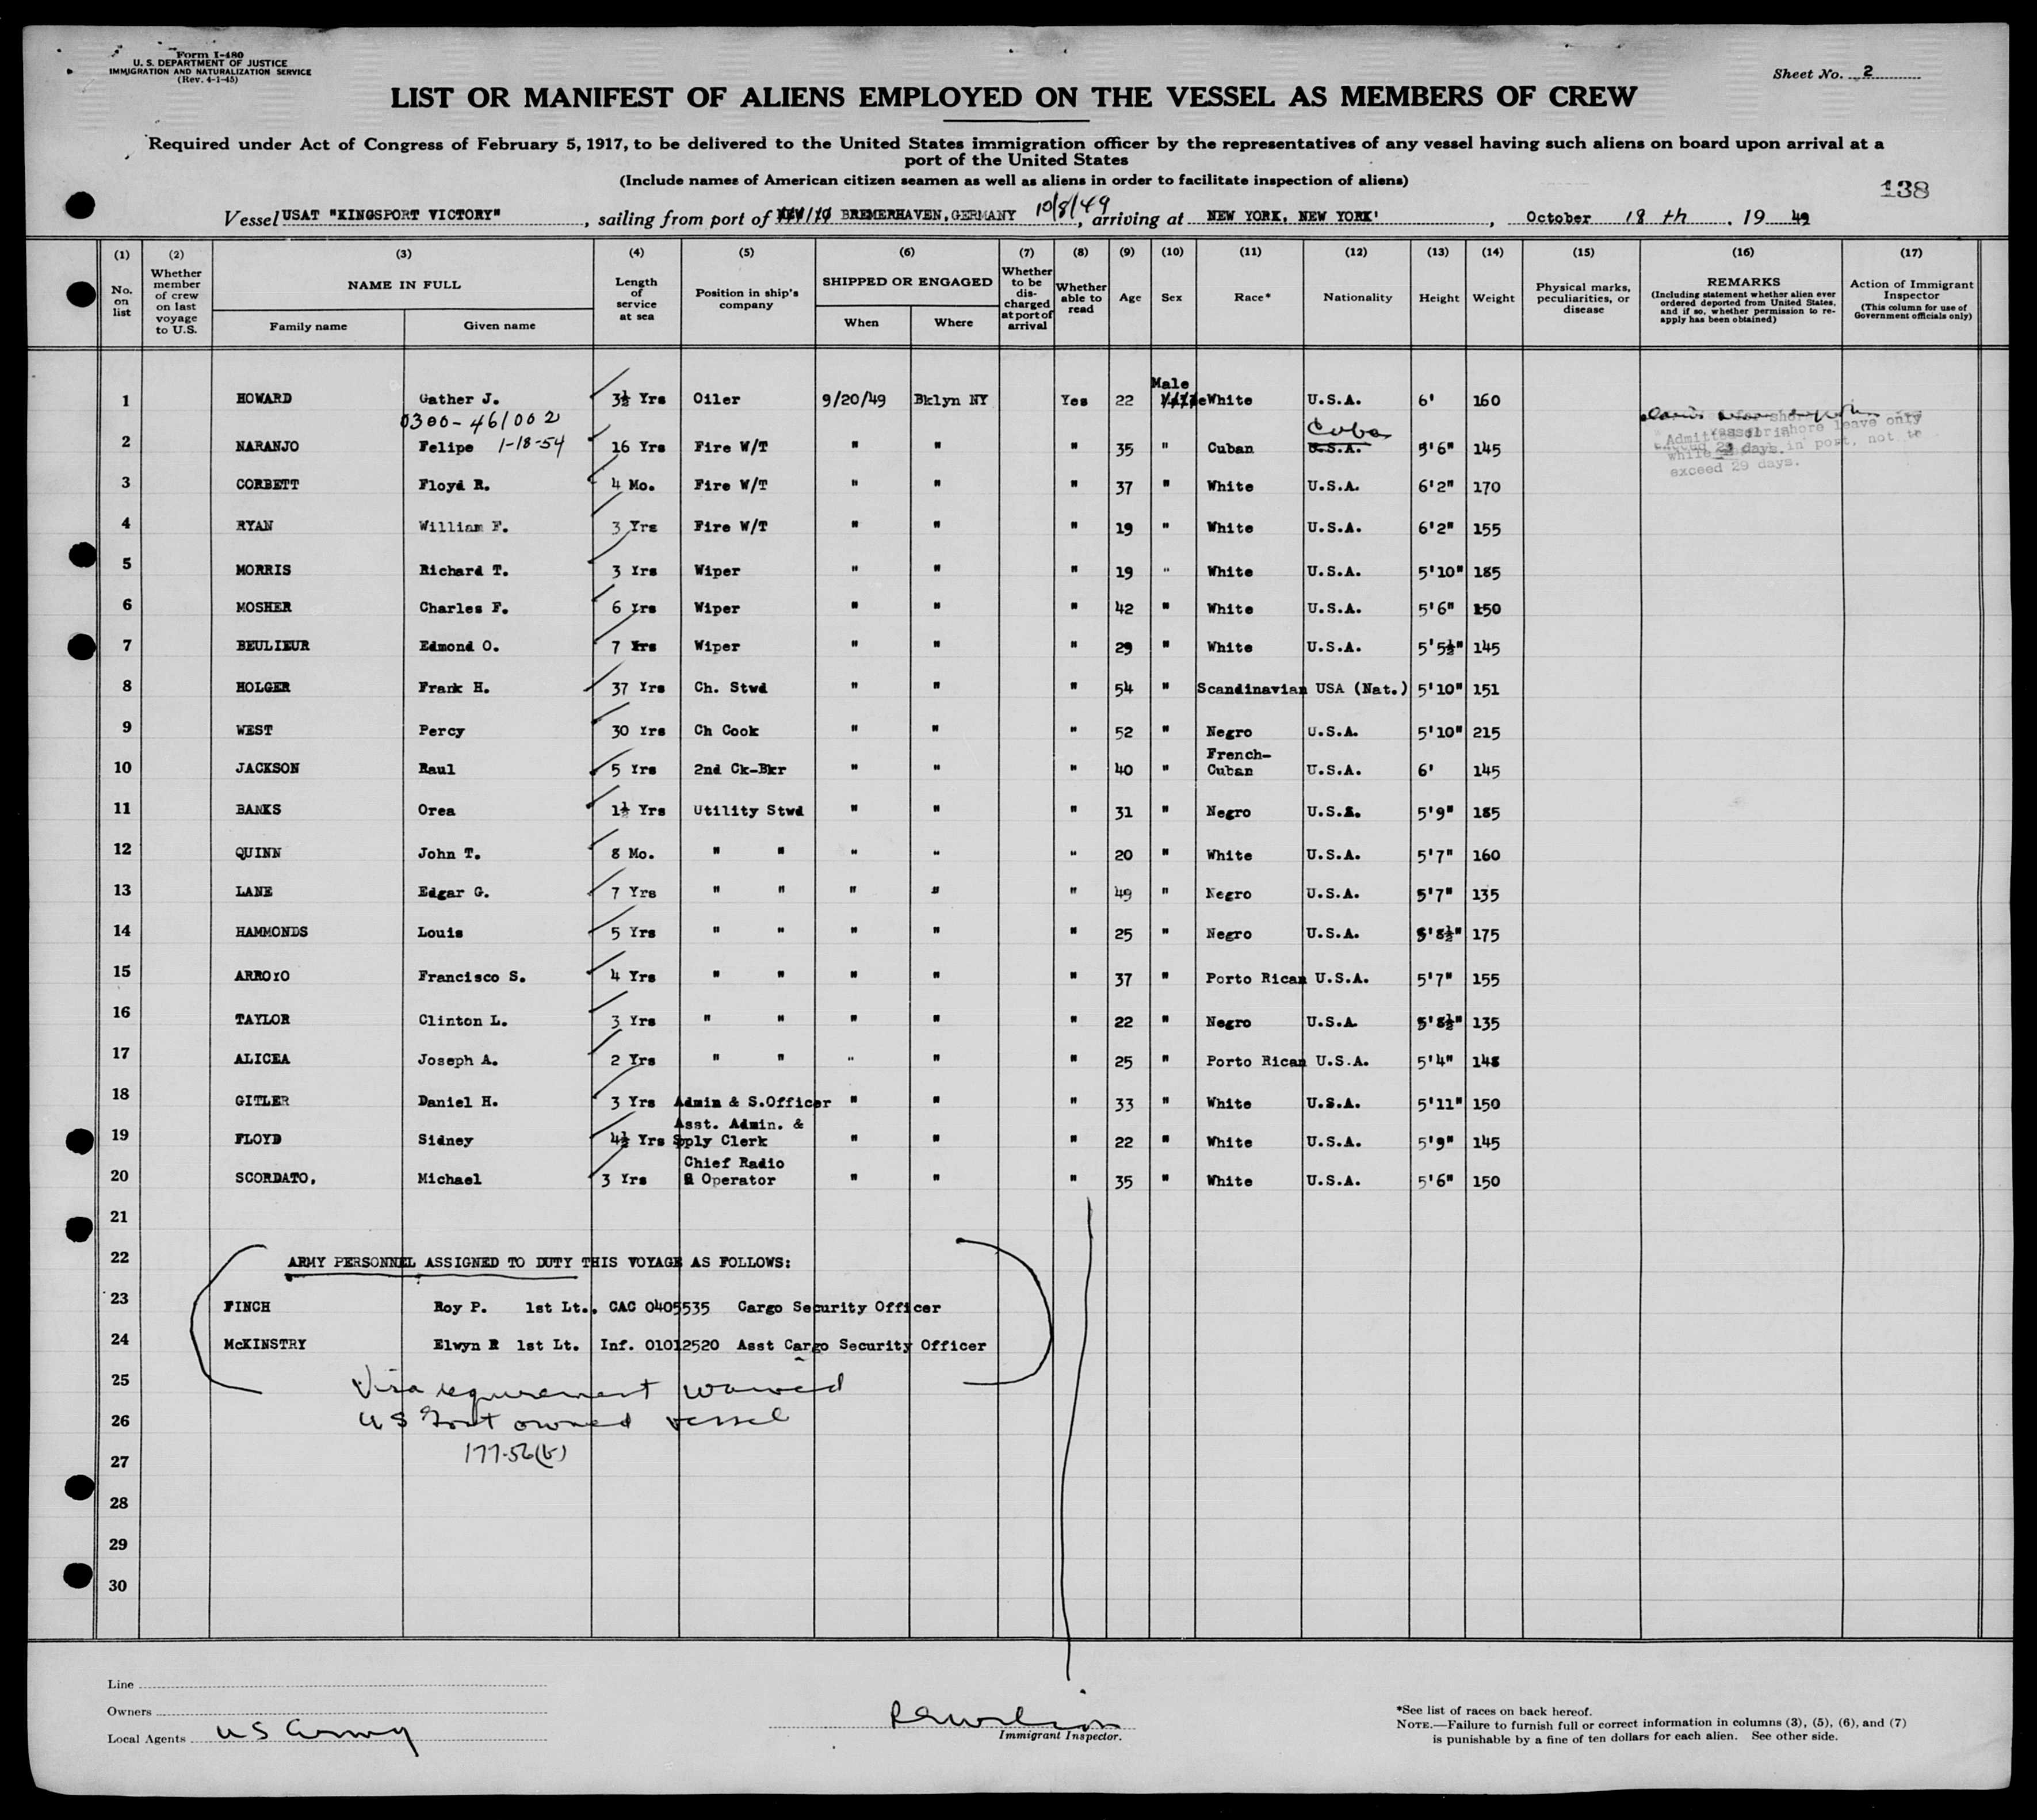 Form I-480
U. S. DEPARTMENT OF JUSTICE
IMMIGRATION AND NATURALIZATION SERVICE
(Rev. 4-1-45)
Sheet No. 2
LIST OR MANIFEST OF ALIENS EMPLOYED ON THE VESSEL AS MEMBERS OF CREW
Required under Act of Congress of February 5, 1917, to be delivered to the United States immigration officer by the representatives of any vessel having such aliens on board upon arrival at a
port of the United States
(Include names of American citizen seamen as well as aliens in order to facilitate inspection of aliens)
138
Vessel USAT "KINGSPORT VICTORY", sailing from port of BREMERHAVEN, GERMANY 10/8/49, arriving at NEW YORK, NEW YORK', October 18 th, 19 49
(1) No. on list
(2) Whether member of crew on last voyage to U.S.
(3) NAME IN FULL Family name Given name
(4) Length of service at sea
(5) Position in ship's company
(6) SHIPPED OR ENGAGED When Where
(7) Whether to be discharged at port of arrival
(8) Whether able to read
(9) Age
(10) Sex
(11) Race*
(12) Nationality
(13) Height
(14) Weight
(15) Physical marks, peculiarities, or disease
(16) REMARKS (Including statement whether alien ever ordered deported from United States, and if so, whether permission to re-apply has been obtained)
(17) Action of Immigrant Inspector (This column for use of Government officials only)
Male
1 HOWARD Gather J. 3½ Yrs Oiler 9/20/49 Bklyn NY Yes 22 White U.S.A. 6' 160
0300-461002 Cuba
2 NARANJO Felipe 1-18-54 16 Yrs Fire W/T " " " 35 " Cuban U.S.A. 5'6" 145
shore leave only
while days in port, not to
exceed 29 days.
3 CORBETT Floyd R. 4 Mo. Fire W/T " " " 37 " White U.S.A. 6'2" 170
4 RYAN William F. 3 Yrs Fire W/T " " " 19 " White U.S.A. 6'2" 155
5 MORRIS Richard T. 3 Yrs Wiper " " " 19 " White U.S.A. 5'10" 185
6 MOSHER Charles F. 6 Yrs Wiper " " " 42 " White U.S.A. 5'6" 150
7 BEULIEUR Edmond O. 7 Yrs Wiper " " " 29 " White U.S.A. 5'5½" 145
8 HOLGER Frank H. 37 Yrs Ch. Stwd " " " 54 " Scandinavian USA (Nat.) 5'10" 151
9 WEST Percy 30 Yrs Ch Cook " " " 52 " Negro U.S.A. 5'10" 215
10 JACKSON Raul 5 Yrs 2nd Ck-Bkr " " " 40 " French-Cuban U.S.A. 6' 145
11 BANKS Orea 1½ Yrs Utility Stwd " " " 31 " Negro U.S.A. 5'9" 185
12 QUINN John T. 8 Mo. " " " " " 20 " White U.S.A. 5'7" 160
13 LANE Edgar G. 7 Yrs " " " " " 49 " Negro U.S.A. 5'7" 135
14 HAMMONDS Louis 5 Yrs " " " " " 25 " Negro U.S.A. 5'8½" 175
15 ARROYO Francisco S. 4 Yrs " " " " " 37 " Porto Rican U.S.A. 5'7" 155
16 TAYLOR Clinton L. 3 Yrs " " " " " 22 " Negro U.S.A. 5'8½" 135
17 ALICEA Joseph A. 2 Yrs " " " " " 25 " Porto Rican U.S.A. 5'4" 148
18 GITLER Daniel H. 3 Yrs Admin & S.Officer " " " 33 " White U.S.A. 5'11" 150
Asst. Admin. &
19 FLOYD Sidney 4½ Yrs Sply Clerk " " " 22 " White U.S.A. 5'9" 145
Chief Radio
20 SCORDATO, Michael 3 Yrs Operator " " " 35 " White U.S.A. 5'6" 150
21
22 ARMY PERSONNEL ASSIGNED TO DUTY THIS VOYAGE AS FOLLOWS:
23 FINCH Roy P. 1st Lt., CAC 0405535 Cargo Security Officer
24 McKINSTRY Elwyn R 1st Lt. Inf. 01012520 Asst Cargo Security Officer
25 Visa requirement waived
26 US Govt owned vessel
27 177-56(b)
28
29
30
Line
Owners
Local Agents US Army
Immigrant Inspector.
*See list of races on back hereof.
NOTE.—Failure to furnish full or correct information in columns (3), (5), (6), and (7)
is punishable by a fine of ten dollars for each alien. See other side.